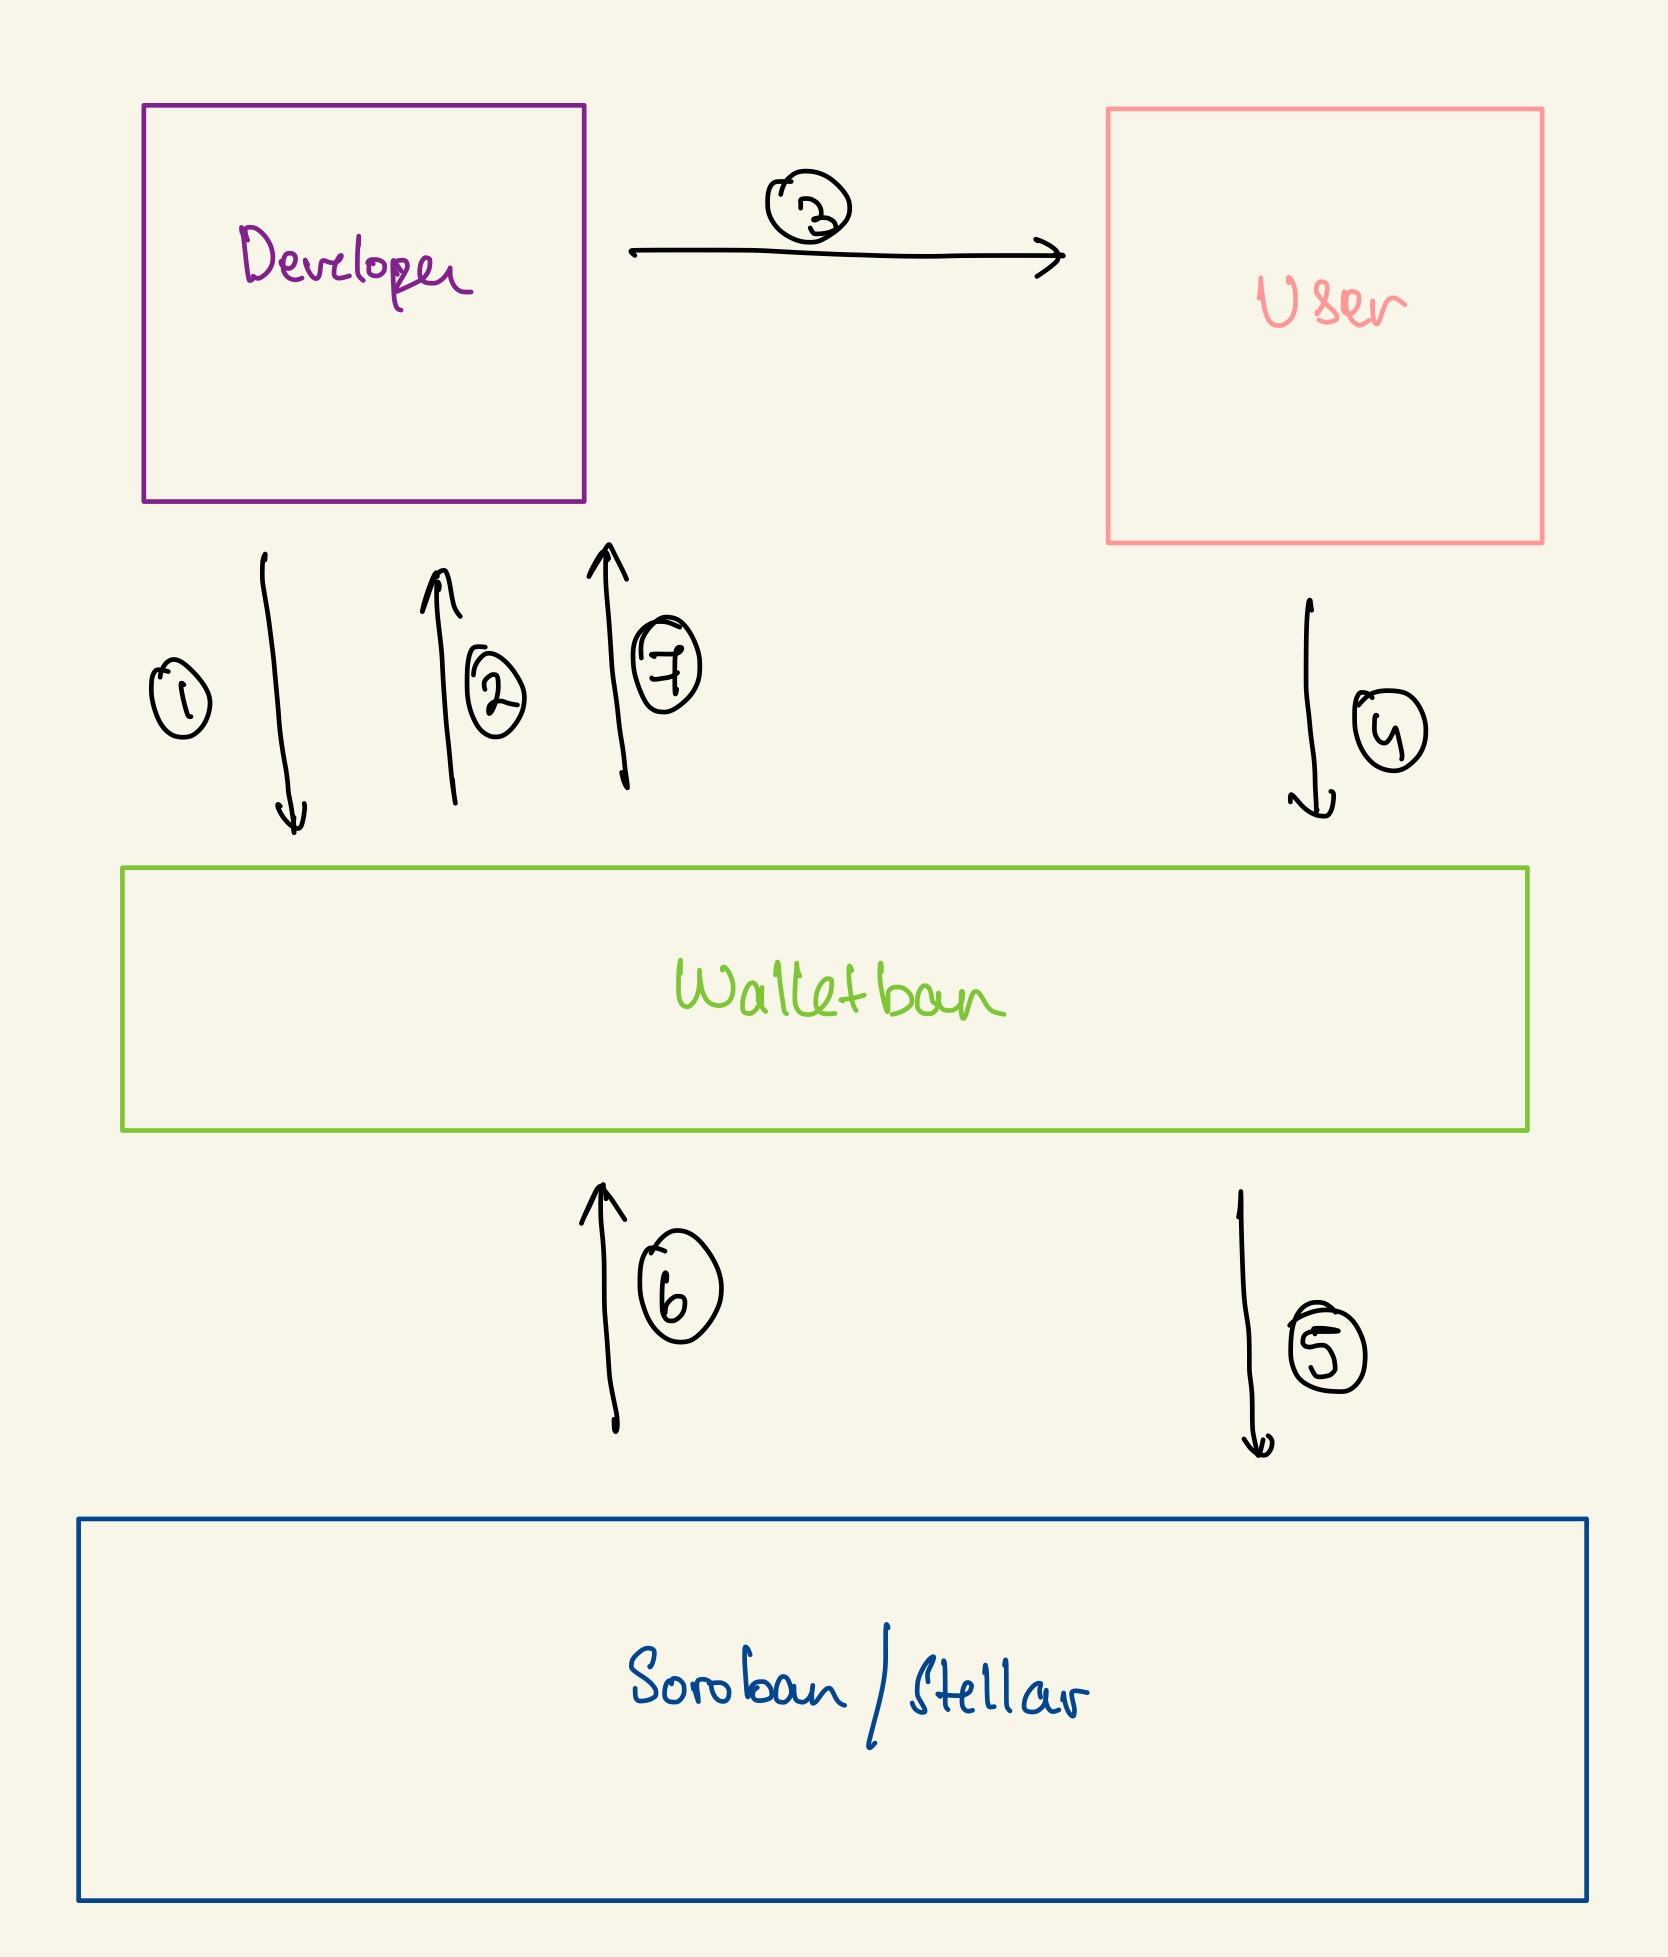 3
Developer
User
1
2
7
4
Walletban
6
5
Soroban / Stellar